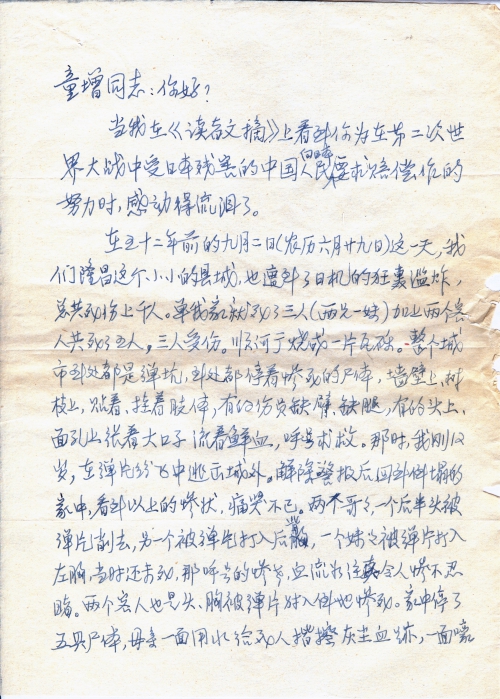 童增同志：你好？
当我在《读者文摘》上看到你为在第二次世
界大战中受日本残害的中国人民向日本要求赔偿作的
努力时，感动得流泪了。
在五十二年前的九月二日（农历六月廿九日）这一天，我
们隆昌这个小小的县城，也遭到了日机的狂轰滥炸，
总共死伤上千人。单我家就死了三人（两兄一妹）加上两个客
人共死了五人，三人受伤。房子烧成一片瓦砾。整个城
市到处都是弹坑，到处都停着惨死的尸体，墙壁上，树
枝上，贴着，挂着肢体，有的伤员缺臂缺腿，有的头上、
面孔上张着大口子流着鲜血，呼号求救。那时，我刚12
岁，在弹片纷飞中逃出城外。解除警报后回到倒塌的
家中，看到以上的惨状，痛哭不已。两个哥哥，一个后半头被
弹片削去，另一个被弹片打入后背，一个妹妹被弹片打入
左胸，当时还未死，那呼号的惨声，血流如注真令人惨不忍
睹。两个客人也是头、胸被弹片打入倒地惨死。家中停了
五具尸体，母亲一面用水给死人揩擦灰尘血迹，一面嚎